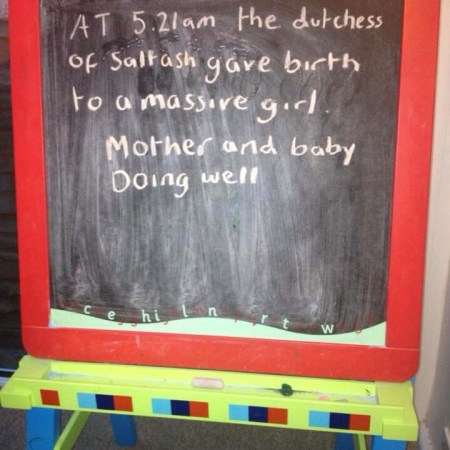 AT 5.21am the dutchess
of Saltash gave birth
to a massive girl.
Mother and baby
Doing well
c e hi l n r t w